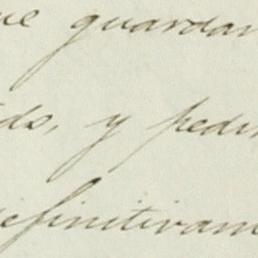 ue guardar
ds, y pedi
efinitivam